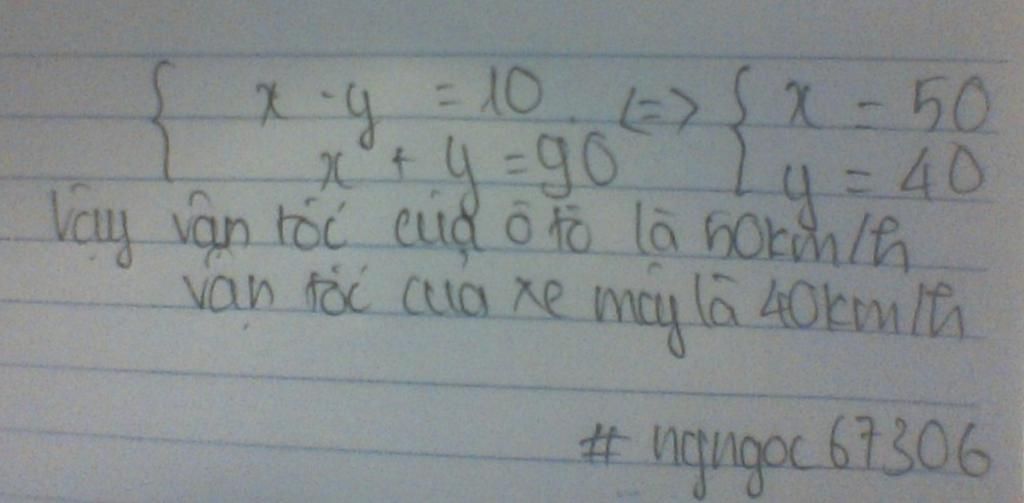 { x - y = 10 <=> { x = 50
x + y = 90 y = 40
Vậy vận tốc của ô tô là 50km/h
vận tốc của xe máy là 40km/h
# ngngoc67306